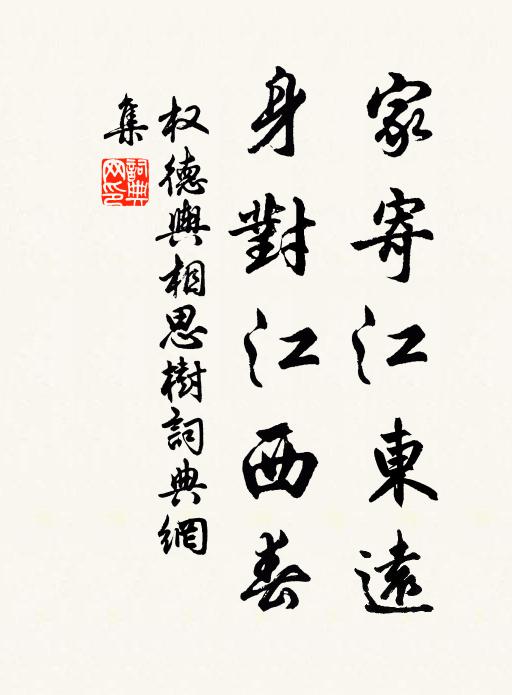 家寄江東遠
身對江西春
权德輿相思樹詞典網
集
詞典
网印